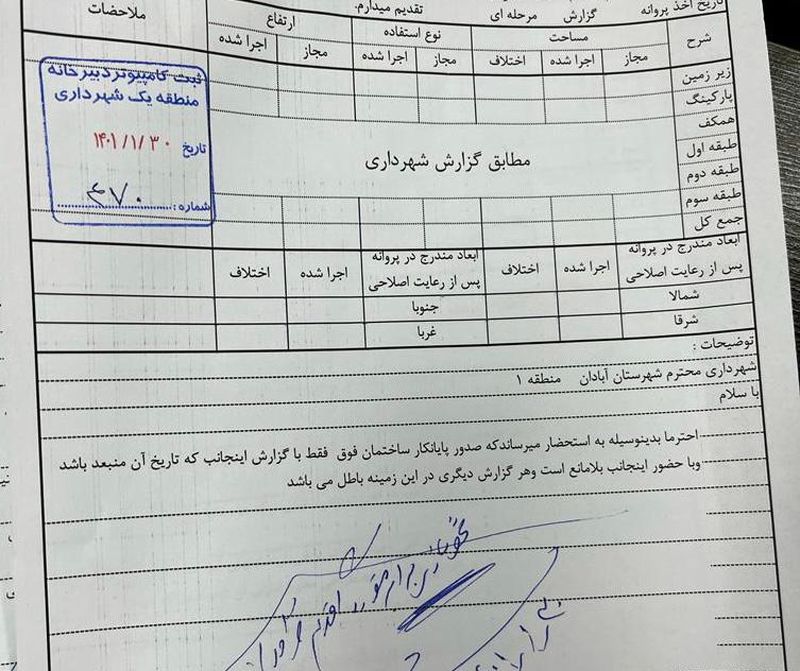 تاریخ اخذ پروانه گزارش مرحله ای تقدیم میدارم.
شرح مساحت نوع استفاده ارتفاع ملاحضات
مجاز اجرا شده اختلاف مجاز اجرا شده مجاز اجرا شده
زیر زمین
پارکینگ
همکف
طبقه اول
طبقه دوم
طبقه سوم
جمع کل
مطابق گزارش شهرداری
ثبت کامپیوتر دبیرخانه
منطقه یک شهرداری
تاریخ ۱۴۰۱/۱/۳۰
شماره: ۴۷۰
ابعاد مندرج در پروانه پس از رعایت اصلاحی اجرا شده اختلاف ابعاد مندرج در پروانه پس از رعایت اصلاحی اجرا شده اختلاف
شمالا جنوبا
شرقا غربا
توضیحات :
شهرداری محترم شهرستان آبادان منطقه ۱
با سلام
احترما بدینوسیله به استحضار میرساندکه صدور پایانکار ساختمان فوق فقط با گزارش اینجانب که تاریخ آن منبعد باشد
وبا حضور اینجانب بلامانع است وهر گزارش دیگری در این زمینه باطل می باشد